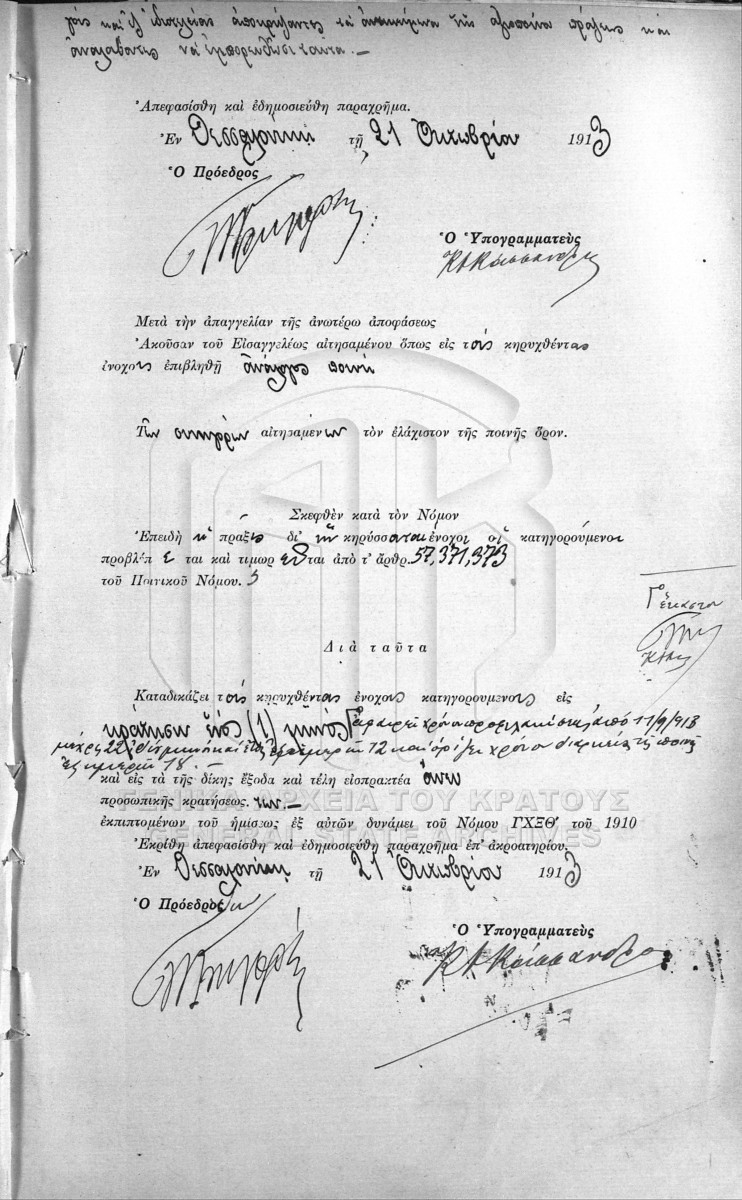 καὶ ἐξ ἰδιοτελείας ἀποκρύψαντες τὰ ἀντικείμενα τῆς ἀξιοποίνου πράξεως καὶ
ἀναλαβόντες νὰ ἐμπορευθῶσι ταῦτα. —
Ἀπεφασίσθη καὶ ἐδημοσιεύθη παραχρῆμα.
Ἐν Θεσσαλονίκῃ τῇ 21 Ὀκτωβρίου 1913
Ὁ Πρόεδρος
Ὁ Ὑπογραμματεὺς
Μετὰ τὴν ἀπαγγελίαν τῆς ἀνωτέρω ἀποφάσεως
Ἀκοῦσαν τοῦ Εἰσαγγελέως αἰτησαμένου ὅπως εἰς τοὺς κηρυχθέντας
ἐνόχους ἐπιβληθῇ ἀνάλογος ποινὴ
Τῶν συνηγόρων αἰτησαμένων τὸν ἐλάχιστον τῆς ποινῆς ὅρον.
Σκεφθὲν κατὰ τὸν Νόμον
Ἐπειδὴ ἡ πρᾶξις δι' ἣν κηρύσσονται ἔνοχοι οἱ κατηγορούμενοι
προβλέπεται καὶ τιμωρεῖται ἀπὸ τ' ἄρθρ. 57, 371, 373
τοῦ Ποινικοῦ Νόμου.
Γ ἕκαστον
Διὰ ταῦτα
Καταδικάζει τοὺς κηρυχθέντας ἐνόχους κατηγορουμένους εἰς
κράτησιν ἑνὸς (1) μηνὸς Γ ἀφαιρεῖ χρόνον προφυλακίσεως ἀπὸ 11/9/913
μέχρι 22 ἰδίου μηνὸς καὶ ἔτους ἐξ ἡμερῶν 12 καὶ ὁρίζει χρόνον διαρκείας τῆς ποινῆς
ἐξ ἡμερῶν 18. —
καὶ εἰς τὰ τῆς δίκης ἔξοδα καὶ τέλη εἰσπρακτέα ἄνευ
προσωπικῆς κρατήσεώς των. —
ἐκπιπτομένων τοῦ ἡμίσεως ἐξ αὐτῶν δυνάμει τοῦ Νόμου ΓΧΞΘ' τοῦ 1910
Ἐκρίθη ἀπεφασίσθη καὶ ἐδημοσιεύθη παραχρῆμα ἐπ' ἀκροατηρίου.
Ἐν Θεσσαλονίκῃ τῇ 21 Ὀκτωβρίου 1913
Ὁ Πρόεδρος
Ὁ Ὑπογραμματεὺς
ΓΕΝΙΚΑ ΑΡΧΕΙΑ ΤΟΥ ΚΡΑΤΟΥΣ
GENERAL STATE ARCHIVES